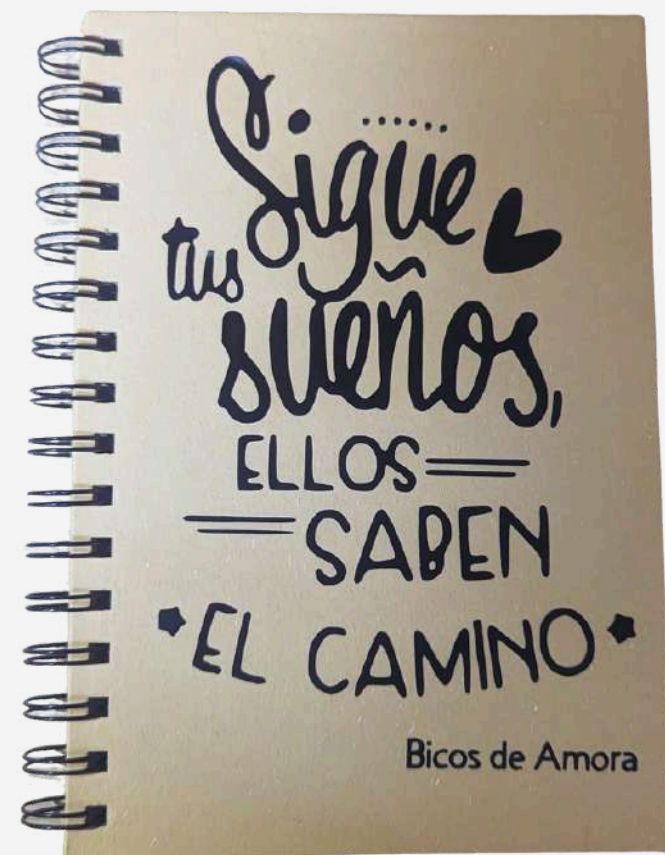 Sigue
tus
sueños,
ELLOS
SABEN
EL CAMINO
Bicos de Amora